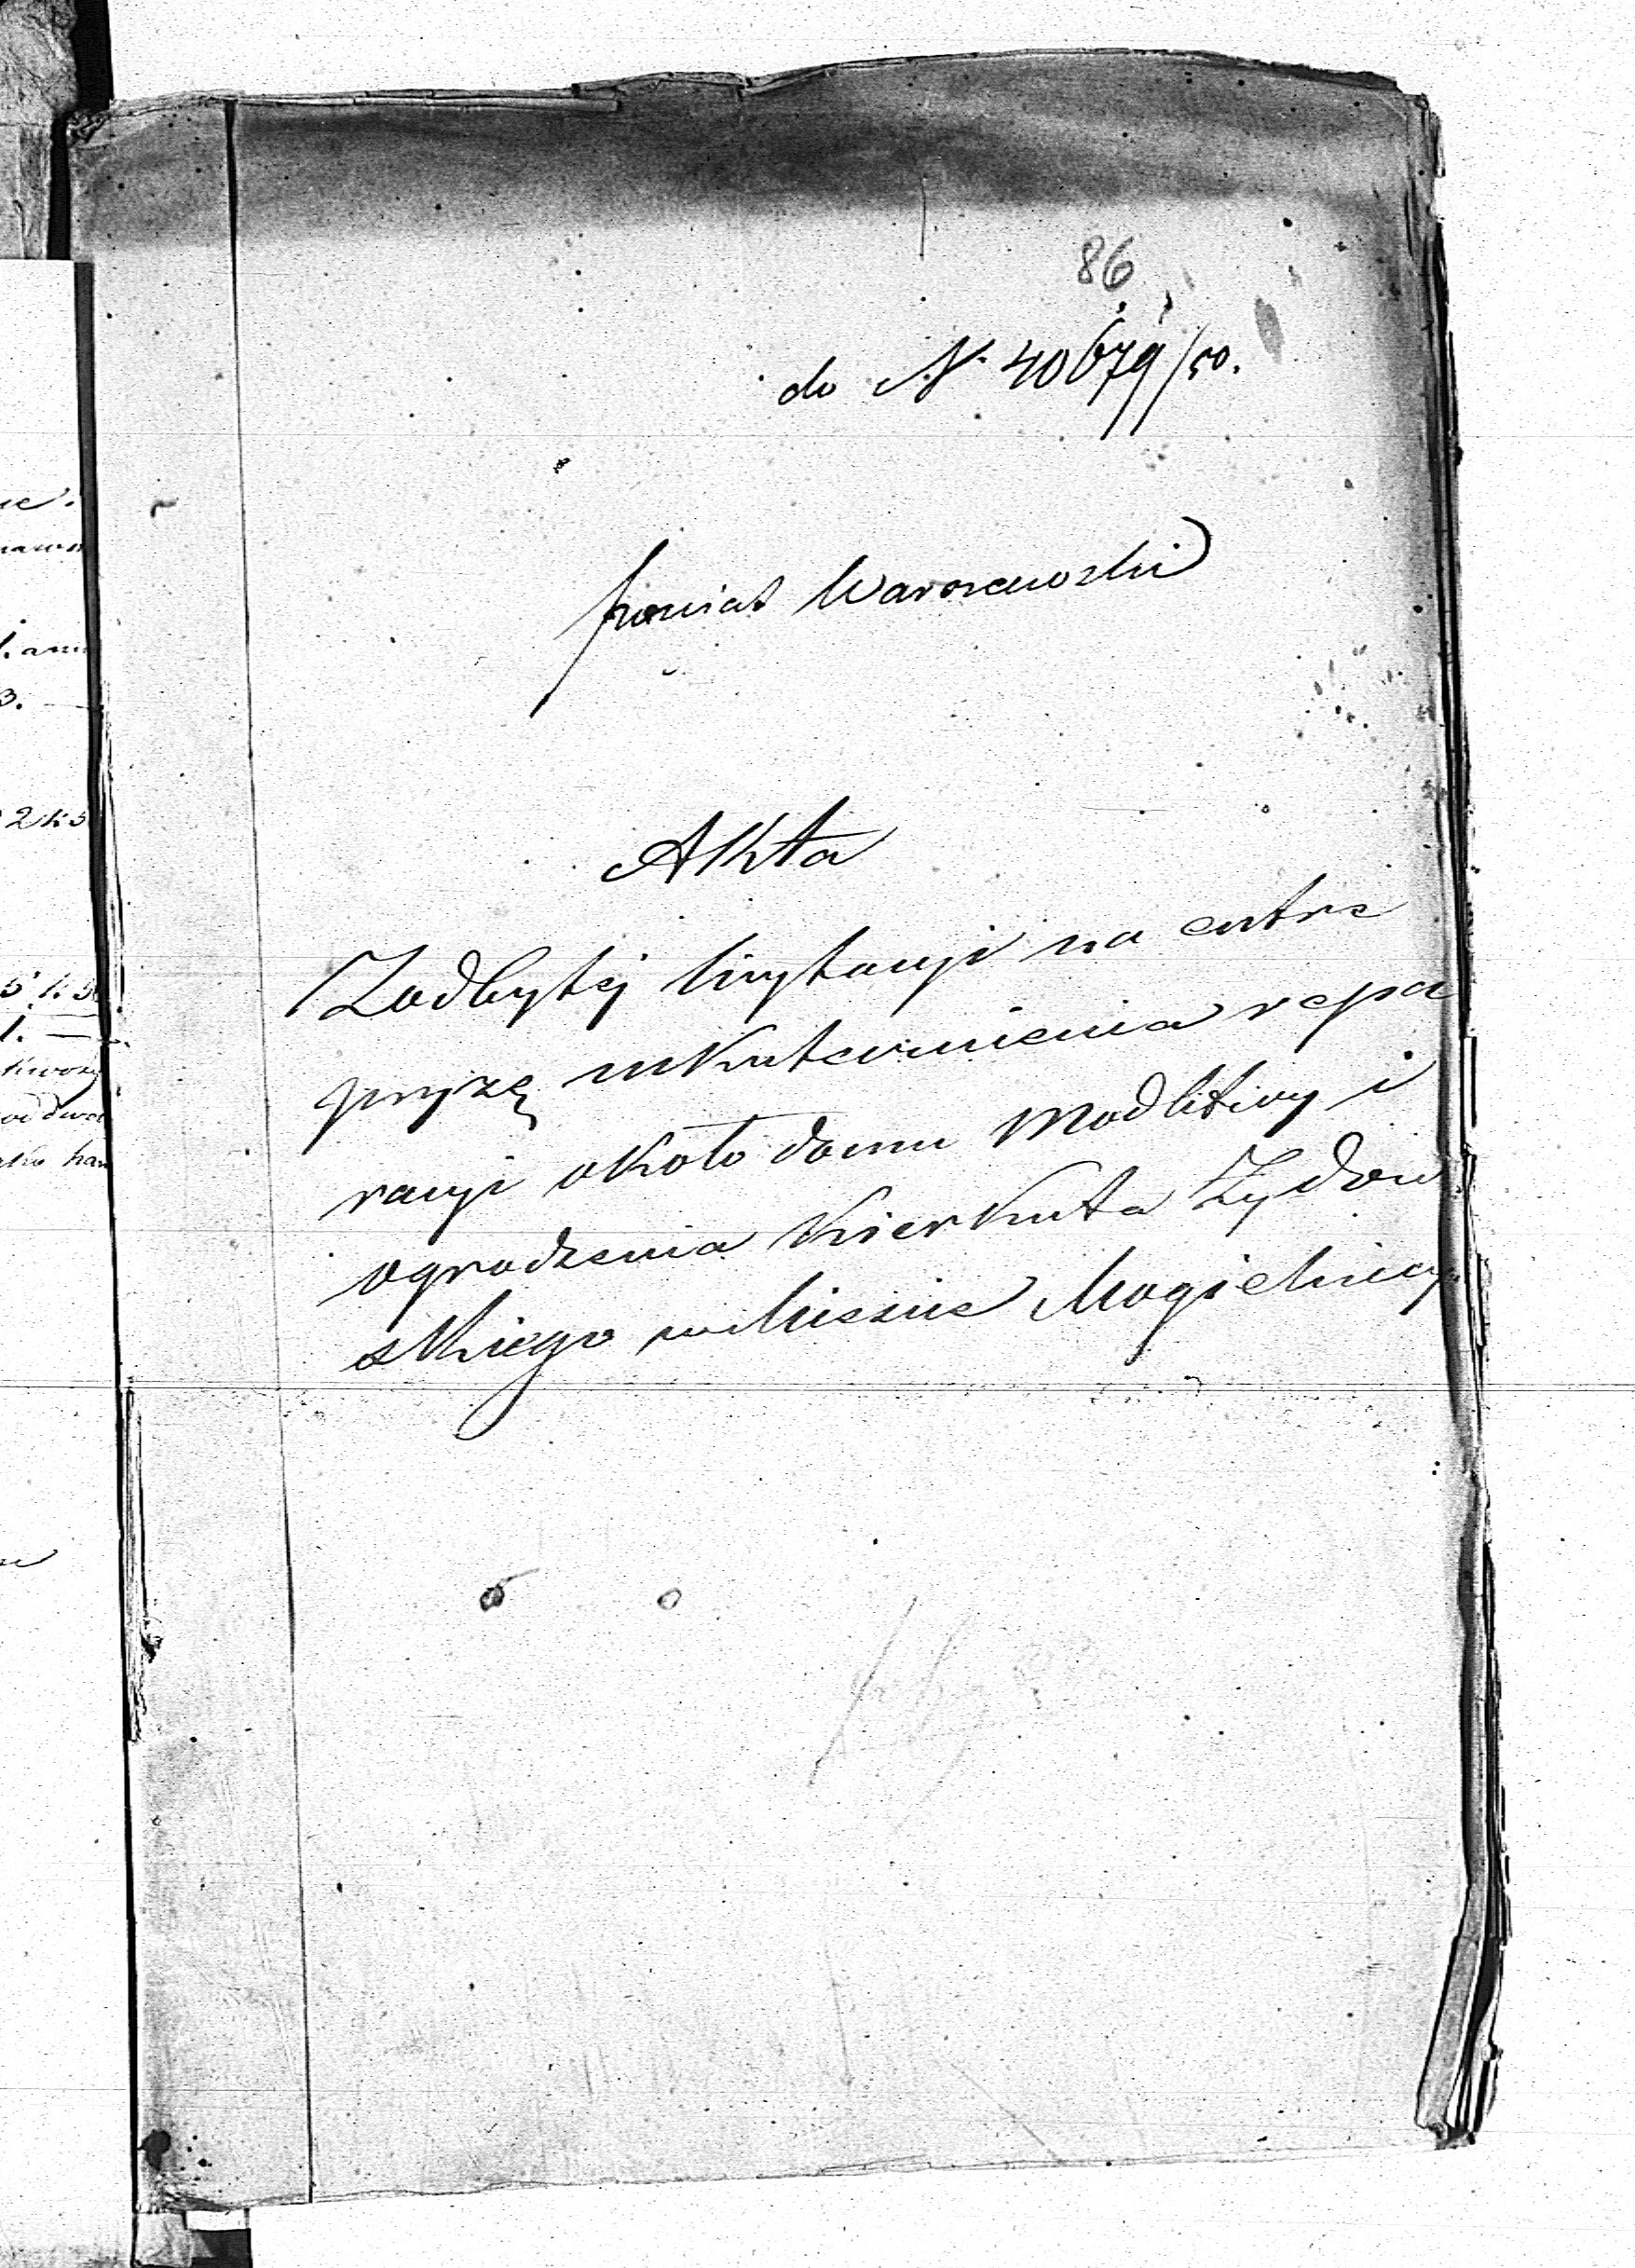 86
do N. 40679/50.
Powiat Warszawski
Akta
Zodbytéj licytacyi na entre
pryzę uskutecznienia repa
racyi około domu Modlitwy i
ogrodzenia Kierkuta Żydow
skiego w Mieście Mogielnicy